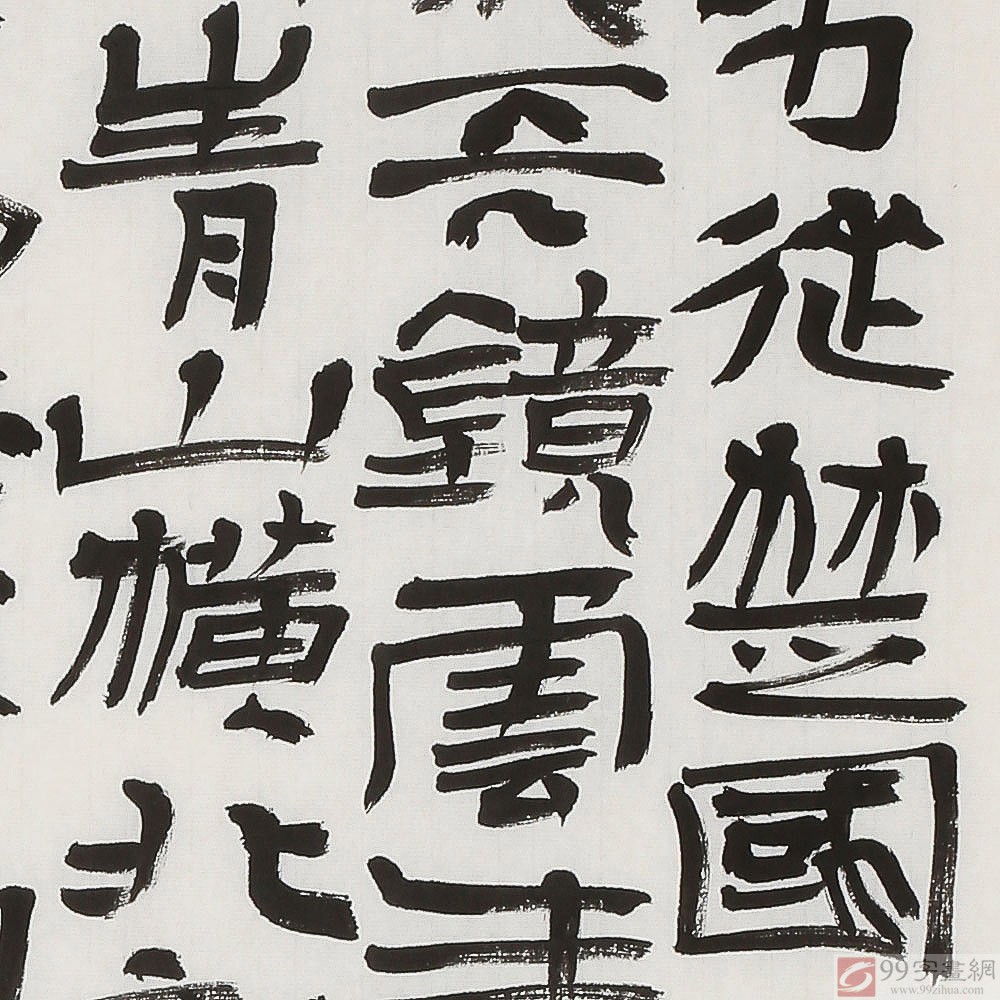 從楚國
天鏡雲生
青山橫北
99字畫網
www.99zihua.com